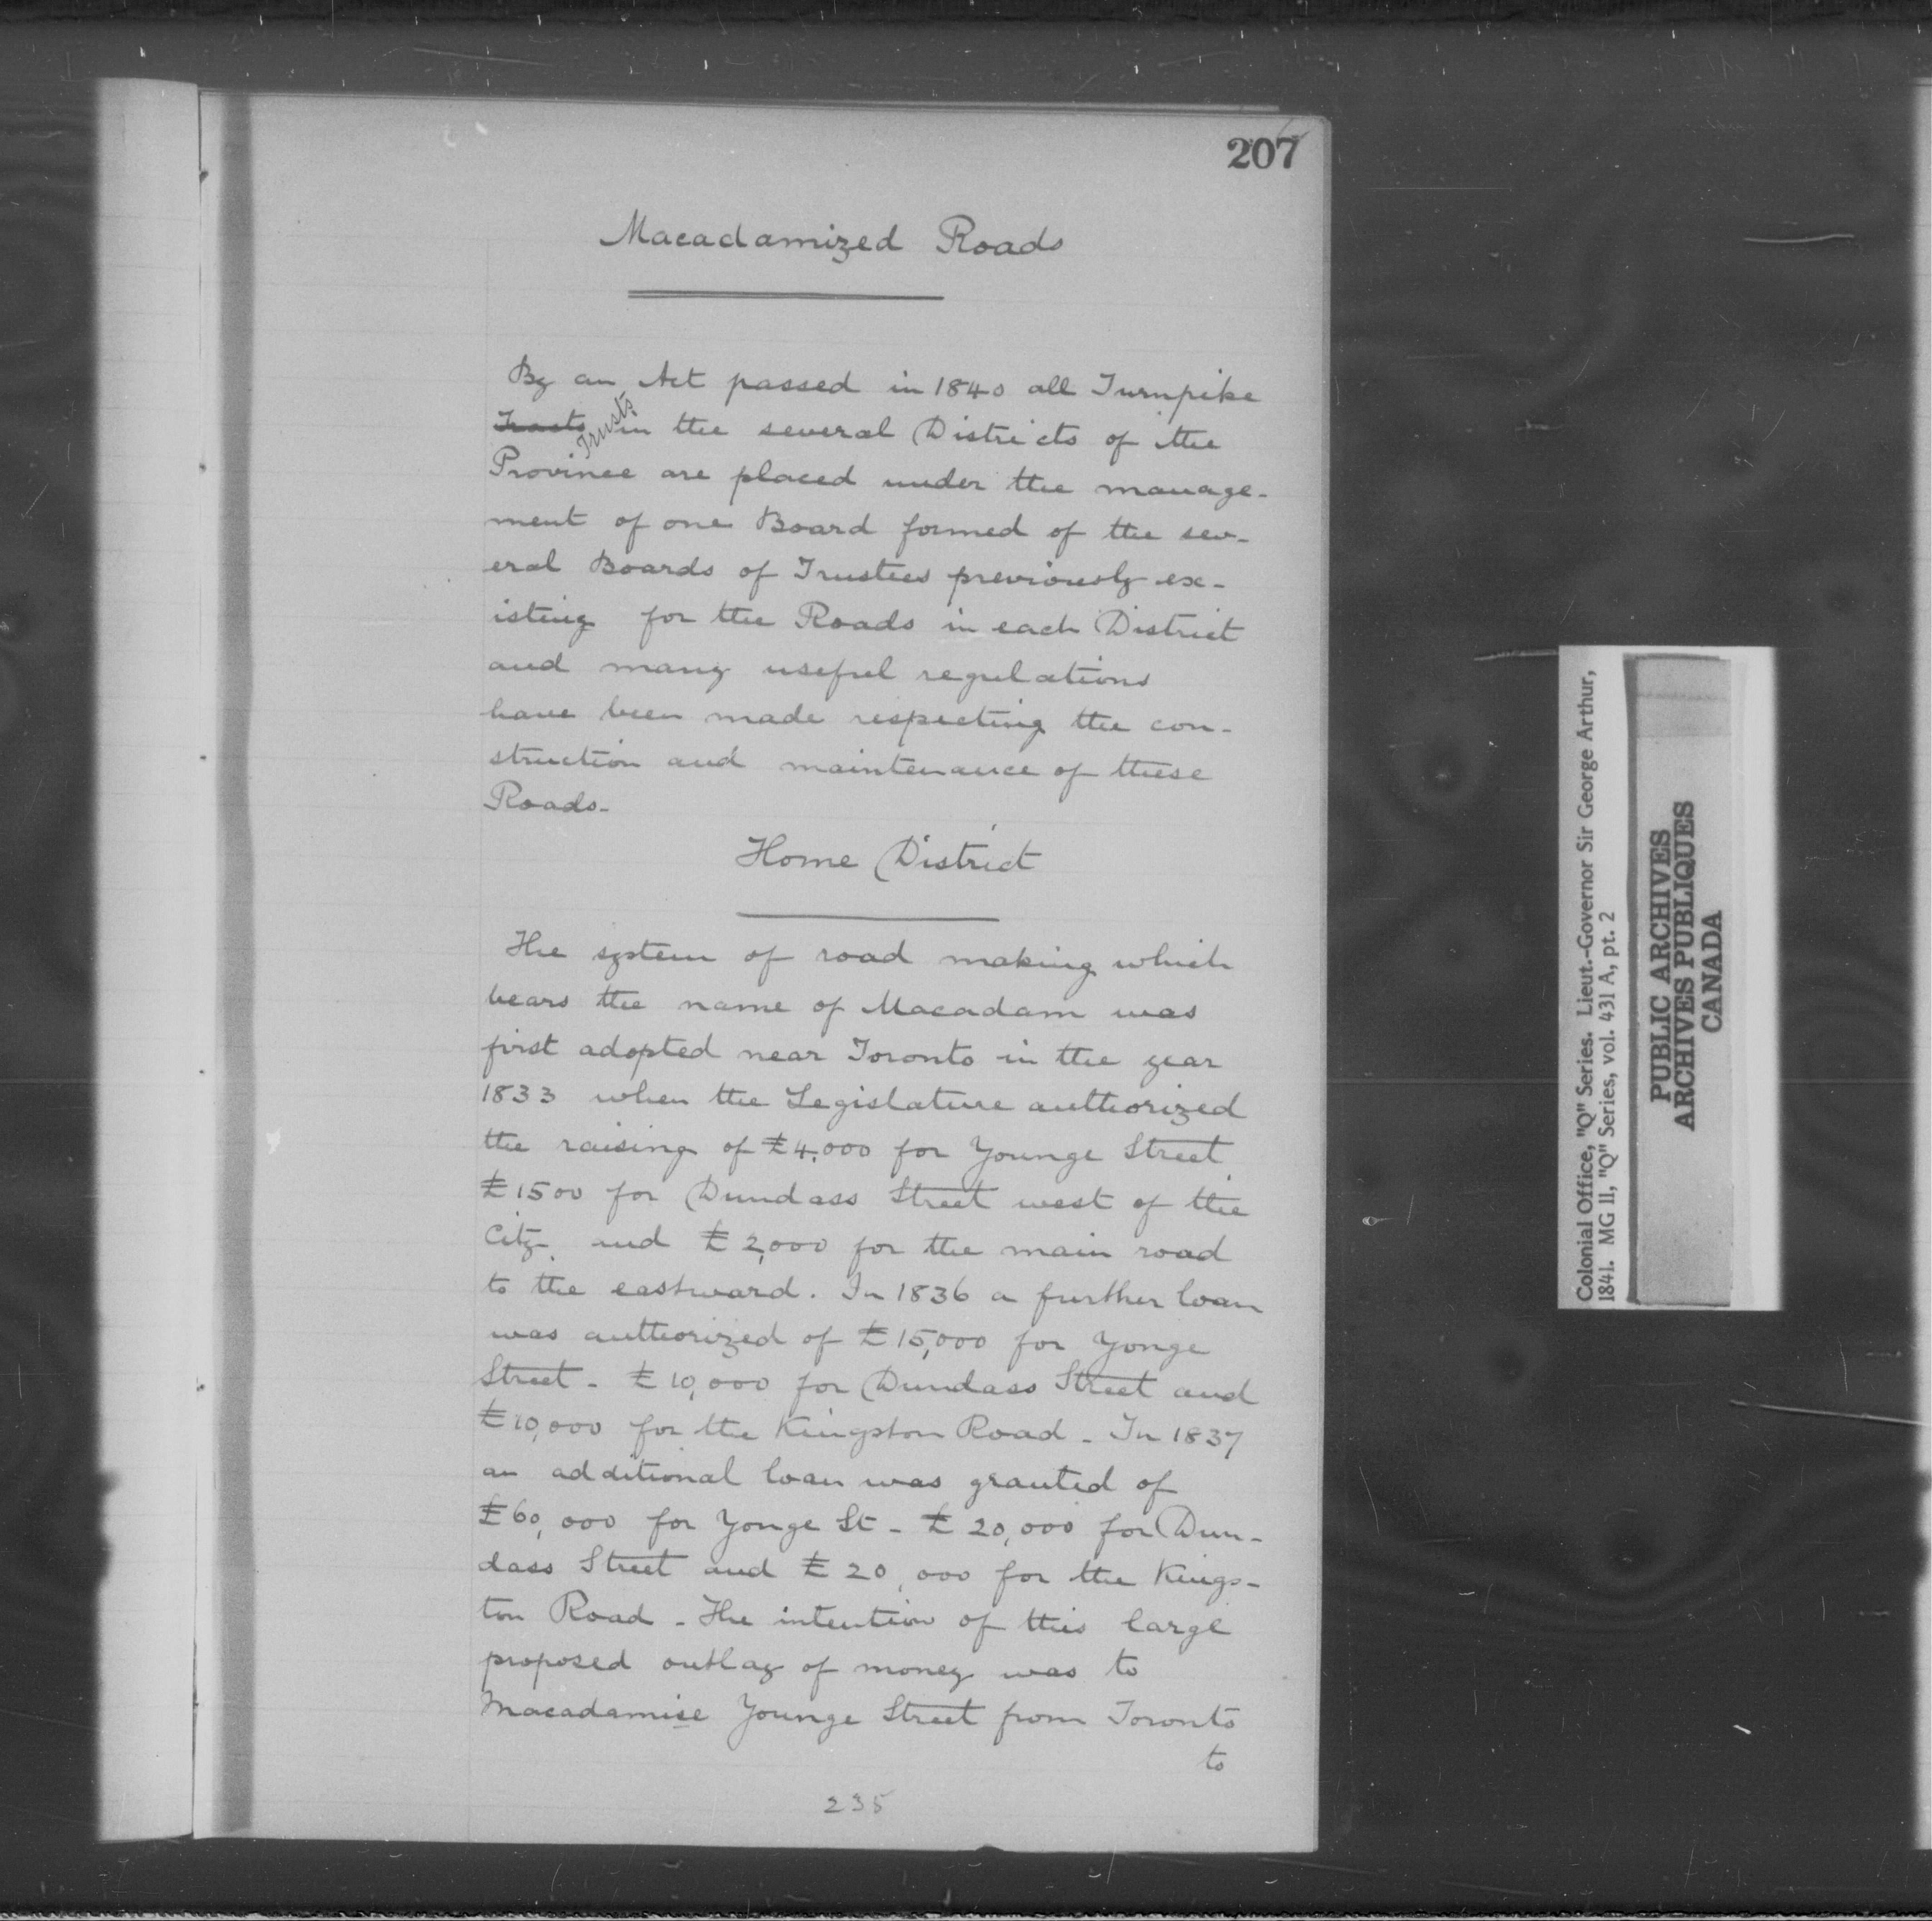 207
Macadamized Roads
By an Act passed in 1840 all Turnpike
Tracts Trusts in the several Districts of the
Province are placed under the manage-
ment of one Board formed of the sev-
eral Boards of Trustees previously ex-
isting for the Roads in each District
and many useful regulations
have been made respecting the con-
struction and maintenance of these
Roads-
Home District
The system of road making which
bears the name of Macadam was
first adopted near Toronto in the year
1833 when the Legislature authorized
the raising of £4,000 for Younge Street
£1500 for Dundass Street west of the
City, and £2,000 for the main road
to the eastward. In 1836 a further loan
was authorized of £15,000 for Yonge
Street - £10,000 for Dundass Street and
£10,000 for the Kingston Road - In 1837
an additional loan was granted of
£60,000 for Yonge St - £20,000 for Dun-
dass Street and £20,000 for the Kings-
ton Road - The intention of this large
proposed outlay of money was to
Macadamise Younge Street from Toronto
to
235
Colonial Office, "Q" Series. Lieut.-Governor Sir George Arthur,
1841. MG 11, "Q" Series, vol. 431 A, pt. 2
PUBLIC ARCHIVES
ARCHIVES PUBLIQUES
CANADA